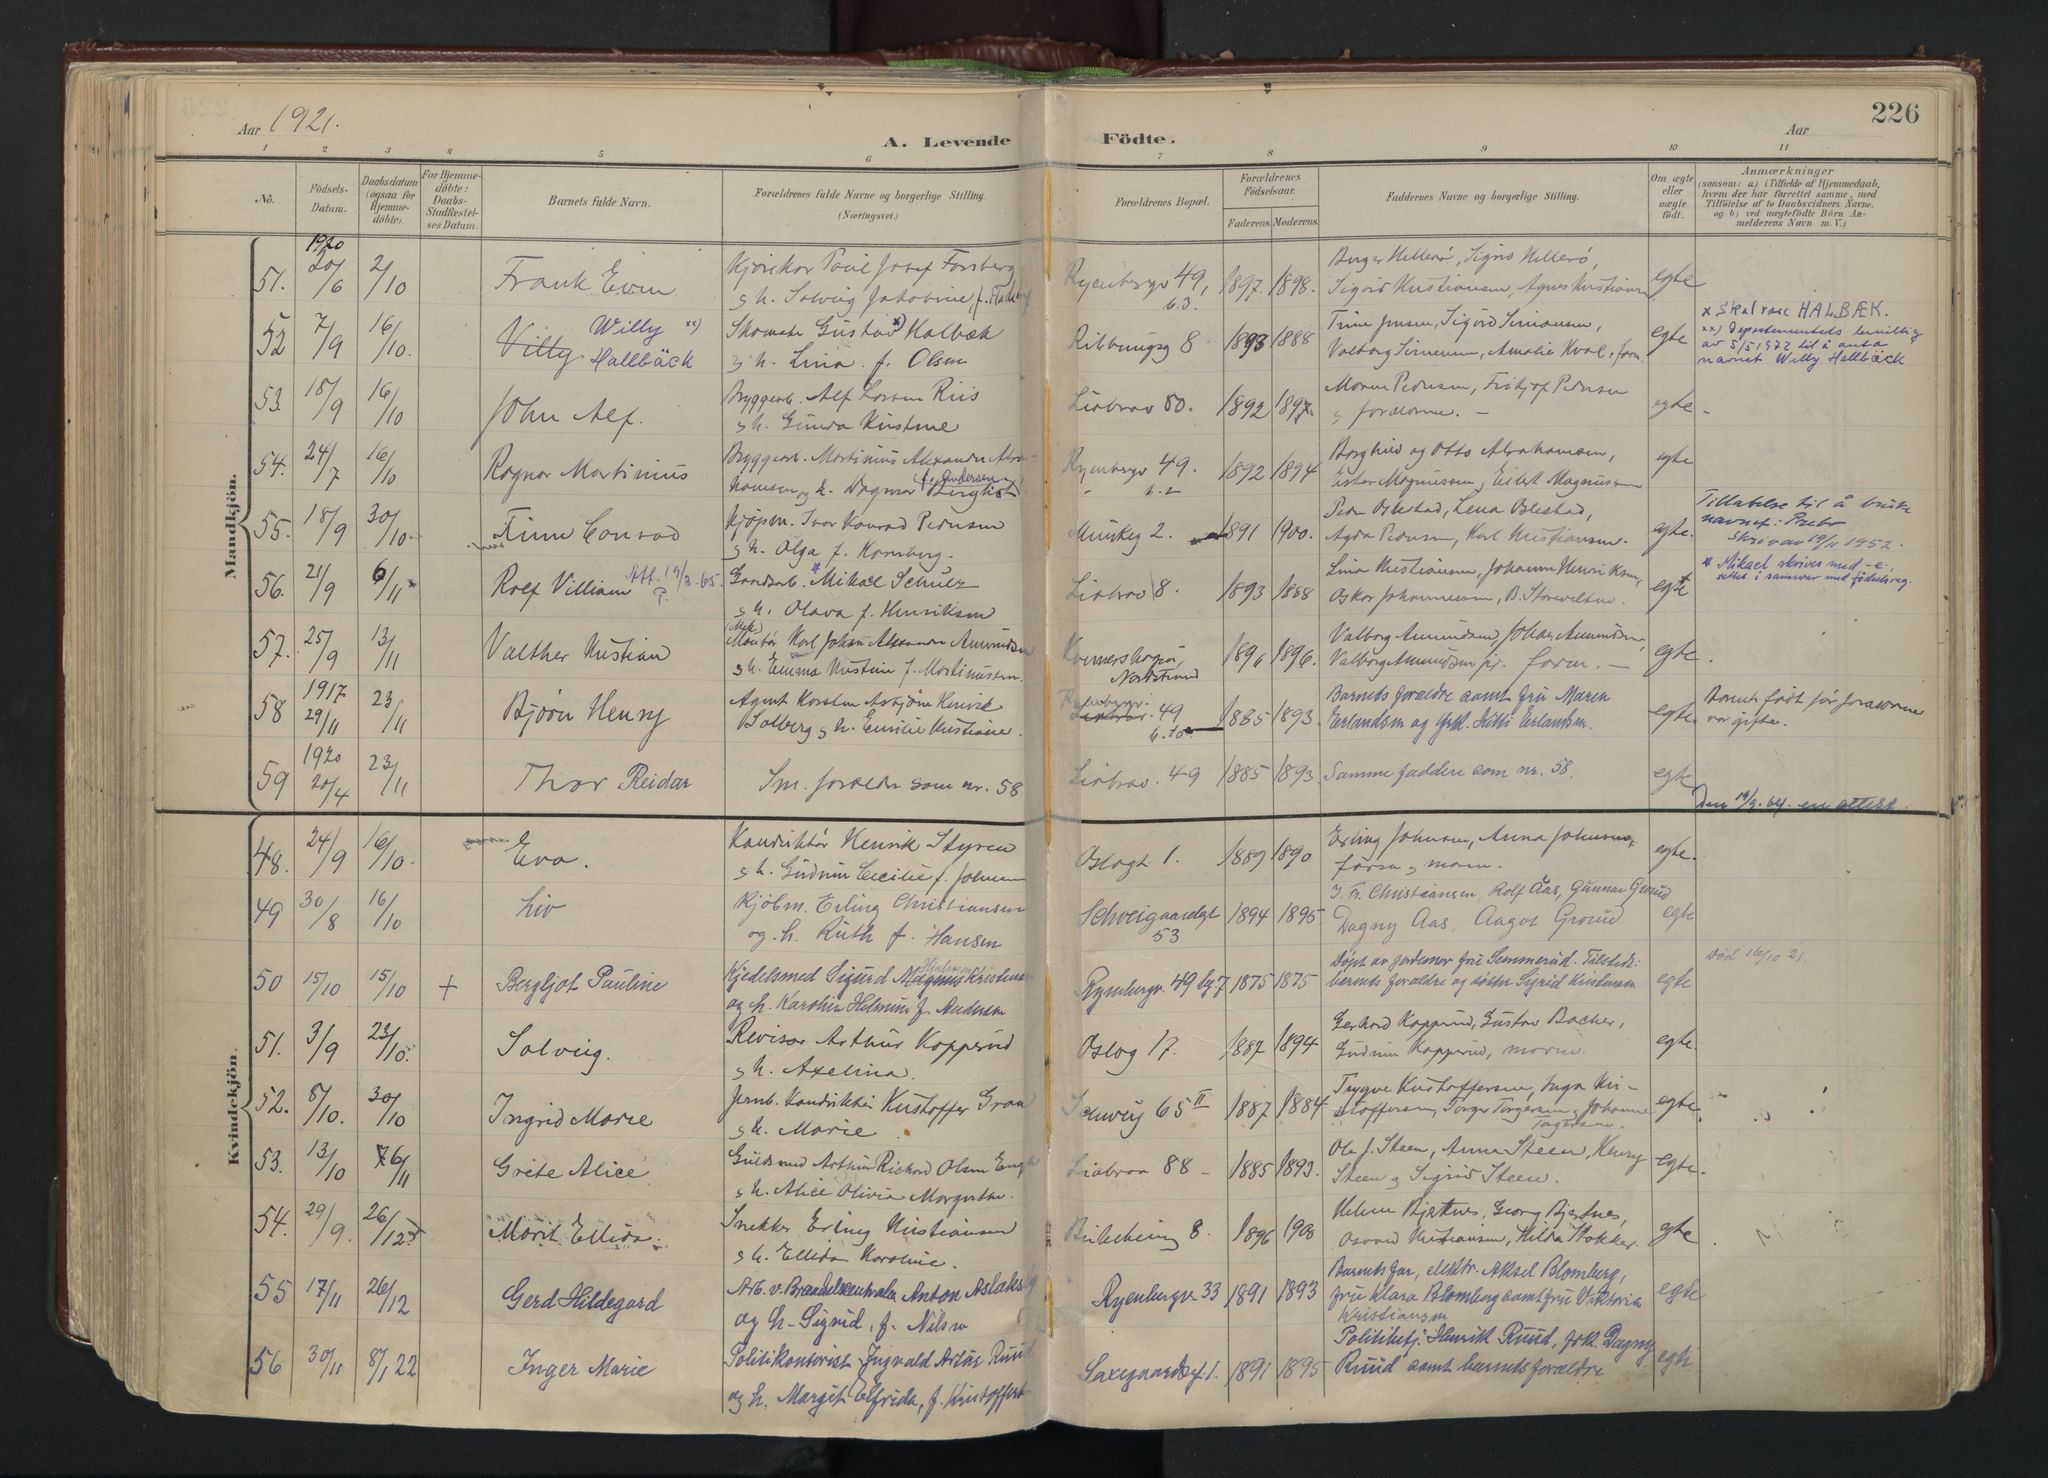 Aar 1921.
A. Levende
Födte.
Aar
226
1 2 3 4 5 6 7 8 9 10 11
No.
Födsels-
Datum.
Daabsdatum
(ogsaa for
Hjemme-
döbte).
For Hjemme-
döbte:
Daabs-
Stadfæstel-
ses Datum.
Barnets fulde Navn.
Forældrenes fulde Navne og borgerlige Stilling.
(Næringsvei.)
Forældrenes Bopæl.
Forældrenes
Födselsaar.
Faderens. Moderens.
Faddernes Navne og borgerlige Stilling.
Om ægte
eller
uægte
födt.
Anmærkninger
(saasom: a) i Tilfælde af Hjemmedaab,
hvem der har forrettet samme, med
Tilföielse af to Daabsvidners Navne,
og b) ved uægtefödte Börn An-
melderens Navn m. V.)
Mandkjön.
51. 1920 20/6 2/10 Frank Evin
Paul Josef Forsberg
og h. Solvug Jakobine
Ryenbergv 49, b.3. 1897. 1898.
Birger Hellerø, Sigrid Hellerø,
Sigrid Kristiansen, Agnes Kristiansen
egte
52 7/9 16/10. Villy Willy xx) Hallbäck
Skomaker Gustav x) Kalbæk
og h. Lina f. Olsen
Ribbungsg 8. 1893 1888
Trine Jensen, Sigurd Simonsen,
Valborg Simensen, Amalie Kval,
egte
x Skal være HALBÆK.
xx) Departementets bevilling
av 5/5 1972 til å anta
navnet Willy Hallbäck
53. 18/9 16/10 John Alf.
Bryggearb. Alf Riis
og h. Gunda Kristine
Liabrov 80. 1892 1897.
Maren Pedersen, Fritjof Pedersen
og forældrene. –
egte
54. 24/7 16/10 Ragnar Martinius
Bryggearb. Martinius Alexander Abra-
hamsen og h. Dagmar Bergliot f. Andersen
Ryenbergv. 49. b.2 1892 1894
Borghild og Otto Abrahamsen,
Ester Magnussen, Eilert Magnussen
egte
55. 18/9 30/10 Finn Conrad
Kjøpm. Ivar Konrad Pedersen
og h. Olga f. Kornberg.
Munkeg 2. 1891 1900.
Peder Ølestad, Lena Ølestad,
Agda Pedersen, Karl Kristiansen.
egte.
Tillatelse til å bruke
navnet:
Skriv av 19/11 1952.
56. 21/9 6/11 Rolf Villiam Att. 19/3.65.
Gaardsarb. x Mikael Schulz
og h. Olava f. Henriksen
Liabrov 8. 1893 1888
Lina Kristiansen, Johanne Henriksen,
Oskar Johannessen, B.
egte
x Mikael skrives med -e-,
rettet i samsvar med fødselsreg.
57. 25/9 13/11 Valther Kristian
Montør Karl Johan Alexander Amundsen
og h. Emma Kristine f. Martinussen.
Nordstrand 1896 1896.
Valborg Amundsen, Johan Amundsen,
Valborg Amundsen jr. foræ. –
egte.
58 1917 29/11 23/11 Bjørn Henry
Agent Karsten Asbjørn Henrik
Solberg og h. Emilie Kristiane.
Ryenbergv. Liabrov. 49 b.10 1885 1893.
Barnets forældre samt fru Maren
Erlandsen og frk. Erlandsen.
egte
Barnet født før forældrene
var gifte.
59 1920 20/4 23/11 Thor Reidar
Sm. forældre som nr. 58
Liabrov. 49 1885 1893.
Samme faddere som nr. 58.
egte
Den 19/3.64. en attest.
Kvindekjön.
48. 24/9 16/10. Eva.
Konduktør Henrik Styren
og h. Gudrun Cecilie f. Johnsen
Oslogt 1. 1889 1890
Erling Johnsen, Anna Johnsen,
faren og moren.
egte.
49 30/8 16/10 Liv
Kjøbm. Erling Christiansen
og h. Ruth f. Hansen
Schweigaardsgt 53 1894 1895
J. Fr. Christiansen, Rolf Aas, Gunnar Grorud
Dagny Aas, Aagot Grorud
egte
50 15/10 15/10 + Bergljot Pauline
Kjedelsmed Sigurd Magnus Kristensen
og h. Karoline Helmine f. Andersen
Ryenbergv. 49 bg 7 1875 1875
Døpt av jordemor fru Semmerud. Tilstede:
barnets forældre og søster Sigrid Kristensen
egte
Død 16/10 21.
51. 3/9 23/10. Solveig.
Revisor Arthur Kopperud
og h. Axelina.
Oslog 17. 1887 1894
Gerhard Kopperud, Gustav Backer,
Gudrun Kopperud, moren.
egte.
52. 8/10. 30/10 Ingrid Marie
Jernb. konduktør Kristoffer Gran
og h. Marie.
Schweig 65 II 1887 1884
Trygve Kristoffersen, Inga Kri-
stoffersen, Torger Torgersen, Johanne
Torgersen.
egte.
53. 13/10 6/11 Grete Alice
Guldsmed Arthur Richard Olsen Engh
og h. Alice Olivia Margrethe.
Liabrov 88 – 1885 1893.
Ole J. Steen, Anna Steen, Henry
Steen og Sigrid Steen.
egte.
54. 29/9. 26/12 Marit Ellida.
Snekker Erling Kristiansen
og h. Ellida Karoline.
8. 1896 1900
Helene Bjertnes, Georg Bjertnes,
Osvald Kristiansen, Hilda Stokker.
egte
55 17/11 26/12 Gerd Hildegard
Arb. v. Brændselcentralen Anton Aslaksby
og h. Sigrid, f. Nilsen
Ryenbergv 33 1891 1893
Barnets far, elektr. Aksel Blomberg,
fru Klara Blomberg samt fru Viktoria
Kristiansen
egte
56 30/11 8/1 22 Inger Marie
Politikonstabel Ingvald Artur Ruud
og h. Margit Elfrida, f. Kristoffersen
Saxegaardsgt. 1. 1891 1895
Politibetj. Henrik Ruud, frk. Dagny
Ruud samt barnets forældre
egte